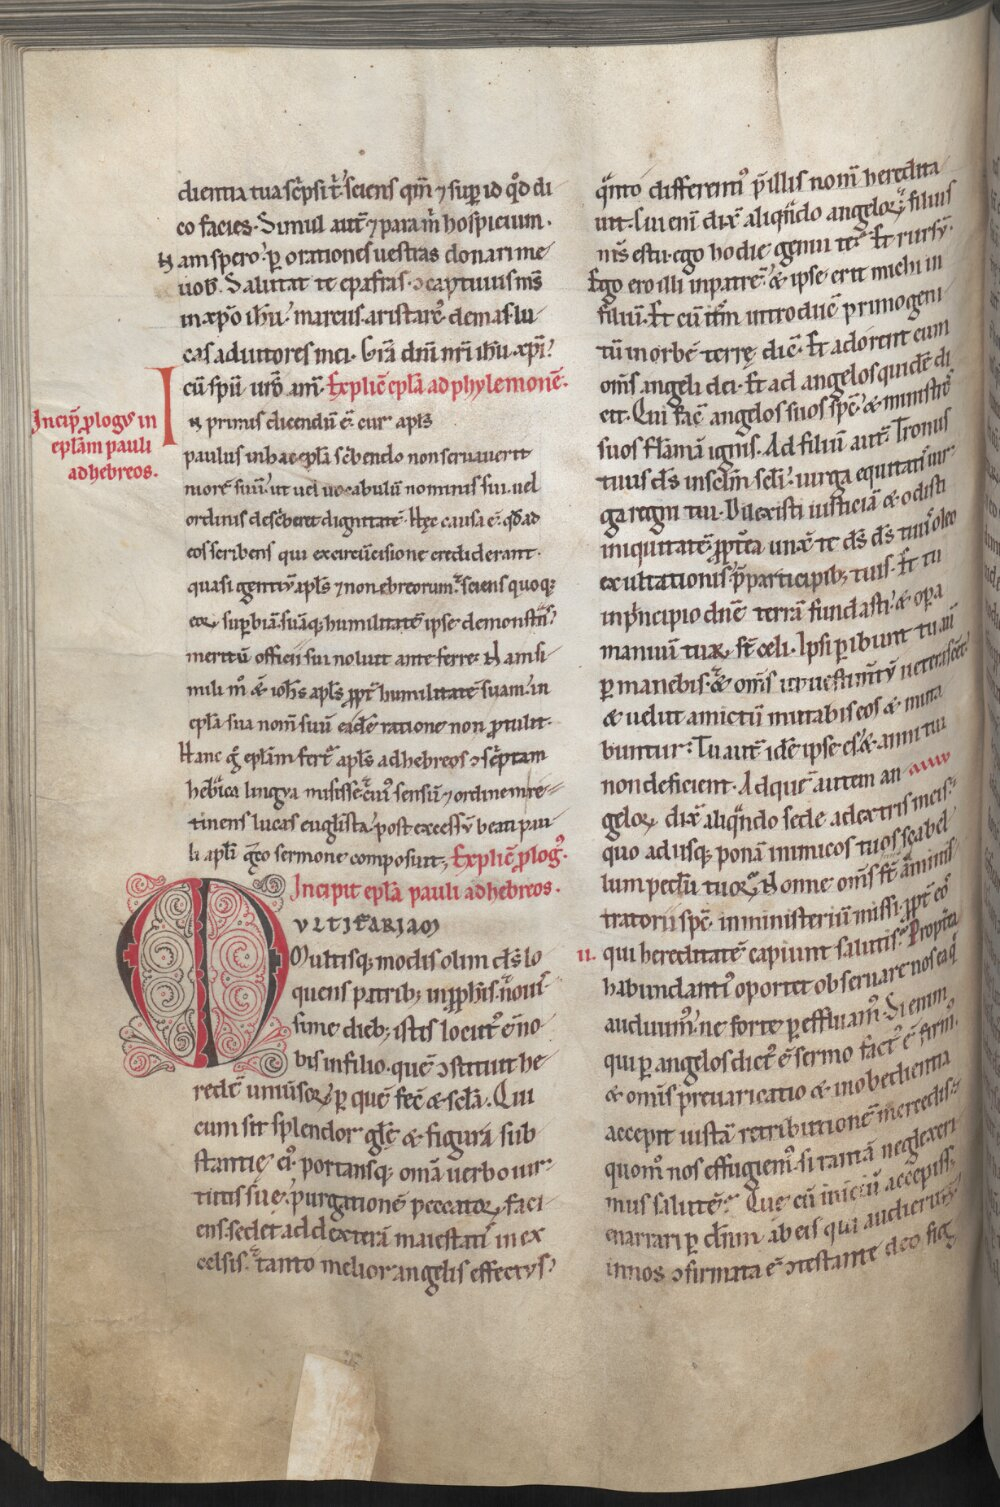 dientia tua sc̄psi t̄ sciens qm̄ ⁊ sup id qd̄ di
co facies. Simul aut̄ ⁊ para m̄ hospicium.
Nam spero p̄ orationes vestras donari me
uob̄. Salutat te epafras ɔcaptiuus ms̄
in xp̄o ihū. marcus. aristarc̄. demas. lu
cas adiutores mei. Gr̄a dn̄i nr̄i ihū xp̄i
cū sp̄u ur̄o am̄. Explic̄ epl̄a ad phylemonē.
Incip̄ ꝓlogꝰ in
epl̄am pauli
ad hebreos.
In primis dicendū ē. cur apl̄s
paulus in hac epl̄a sc̄bendo non seruauerit
morē suū. ut uel uocabulū nominis sui. uel
ordinis desc̄beret dignitatē. Hęc causa ē. qd̄ ad
eos scribens qui ex circūcisione crediderant.
quasi gentiū apl̄s ⁊ non ebreorum. sciens quoq;
eoꝝ supbiā. suāq; humilitatē ipse demonstn̄s
meritū officii sui noluit ante ferre. Nam si
mili m̄ & ioh̄s apl̄s ꝓpt̄ humilitatē suam. in
epl̄a sua nom̄ suū eadē ratione non ꝓtulit.
Hanc g̊ epl̄am fert̄ apl̄s ad hebreos ɔsc̄ptam
heb̄ica lingua misisse. cuiꝰ sensū ⁊ ordinem re=
tinens lucas euglīsta. post excessū beati pau
li apl̄i gc̄o sermone composuit; Explic̄ ꝓlogꝰ.
Incipit epl̄a pauli ad hebreos.
MVLTIFARIAM
Multisq; modis olim ds̄ lo
quens patrib; in ꝓphis. noui
sime dieb; istis locutꝰ ē no
bis in filio. quē ɔstituit he
redē uniūsoꝝ. p̄ quē fec̄ & sc̄la. Qui
cum sit splendor gl̄ę & figura sub
stantię eiꝰ. portansq; om̄a uerbo uir
tutis suę. purgationē peccatoꝝ faci
ens. sedet ad dexterā maiestatis in ex
celsis. tanto melior angelis effectus.
q̄nto differentiꝰ p̄ illis nom̄ heredita
uit. Cui enī dix̄ aliqn̄do angeloꝝ. filius
ms̄ es tu. ego hodie genui te. Et rursꝰ.
Ego ero illi in patrē. & ipse erit michi in
filiū. Et cū itm̄ introduc̄ primogeni
tū in orbē terrę dic̄. Et adorent eum
om̄s angeli dei. Et ad angelos quidē di
cit. Qui fac̄ angelos suos sp̄c. & ministros
suos flammā ignis. Ad filiū aut̄. Tronus
tuus ds̄ in sc̄lm̄ sc̄li. uirga equitatis uir
ga regni tui. Dilexisti iusticiā & odisti
iniquitatē. ꝓpt̄ea unx̄ te ds̄ ds̄ tuus oleo
exultationis p̄ participib; tuis. Et tu
in p̄ncipio dn̄e terrā fundasti. & opa
manuū tuaꝝ st̄ celi. Ipsi pibunt tu aut̄
pmanebis. & om̄s ut uestimt̄ū ueterascēt.
& uelut amictū mutabis eos & muta
buntur. Tu aut̄ idē ipse es. & anni tui
non deficient. Ad que aut̄em an
geloꝝ dix̄ aliqn̄do sede a dextris meis.
quo adusq; ponā inimicos tuos scabel
lum pedū tuoꝝ. Nonne om̄s st̄ aminis
tratorii sp̄c. in ministeriū missi. ꝓpt̄ eos
ii. qui hereditatē capiunt salutis. Propt̄ea
habundantiꝰ oportet obseruare nos ea q̄
audiuimꝰ. ne forte p̄effluamꝰ. Si enim
qui p̄ angelos dictꝰ ē sermo factꝰ ē firmꝰ.
& om̄is p̄uaricatio & inobedientia
accepit iustā retributionē mercedis.
quom̄ nos effugiemꝰ. si tantā neglexeri
mus salutē. Que cū initiū accepiss;
enarrari p̄ dn̄m ab eis qui audierūt
in nos ɔfirmata ē. ɔtestante deo sig